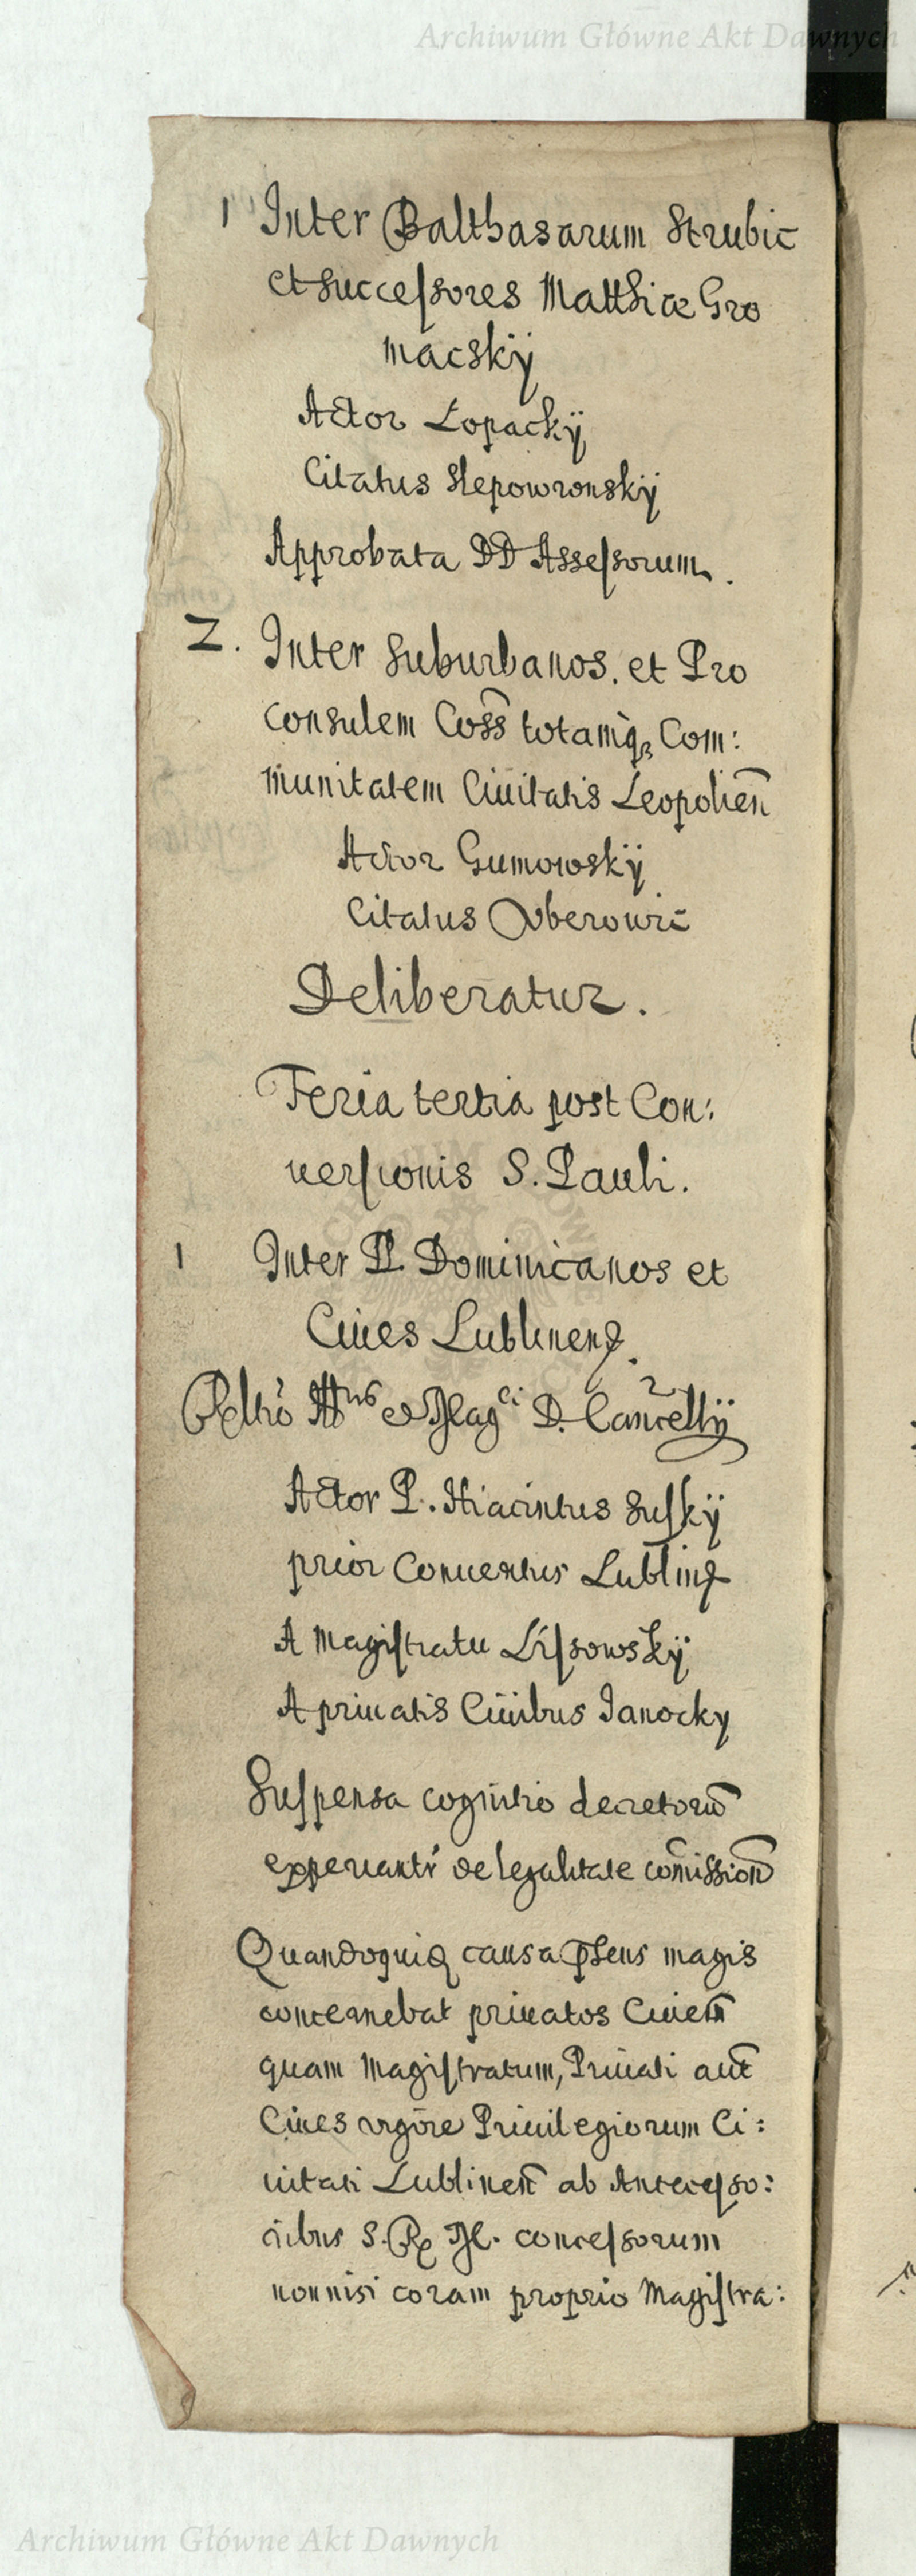 Archiwum Główne Akt Dawnych
1 Inter Balthasarum Strubic
et successores Matthiæ Gro
macskÿ
Actor Łopackÿ
Citatus Slepowronskÿ
Approbata DD Assessorum.
2. Inter Suburbanos. et Pro
consulem Coss̃ totamq̀ꝫ Com:
munitatem Ciuitatis Leopolieñ
Actor Gumowskÿ
Citatus Auberowic
Deliberatur.
Feria tertia post Con:
uersionis S. Pauli.
1 Inter PP. Dominicanos et
Ciues Lublinens.
D. Cancellÿ
Actor P. Hiacintus Suskÿ
prior Conuentus Lublins
A Magistratu Lissowskÿ
A priuatis Ciuibus Janocky
Suspensa cognitio decretorũ
de legalitate com̃ission̄
causa p̄sens magis
concernebat priuatos Ciueñ
quam Magistratum, Priuati aut̃
Ciues vigore Priuilegiorum Ci:
uitati Lublineñ ab Antecesso:
ribus S. R. M. concessorum
nonnisi coram proprio Magistra:
Archiwum Główne Akt Dawnych